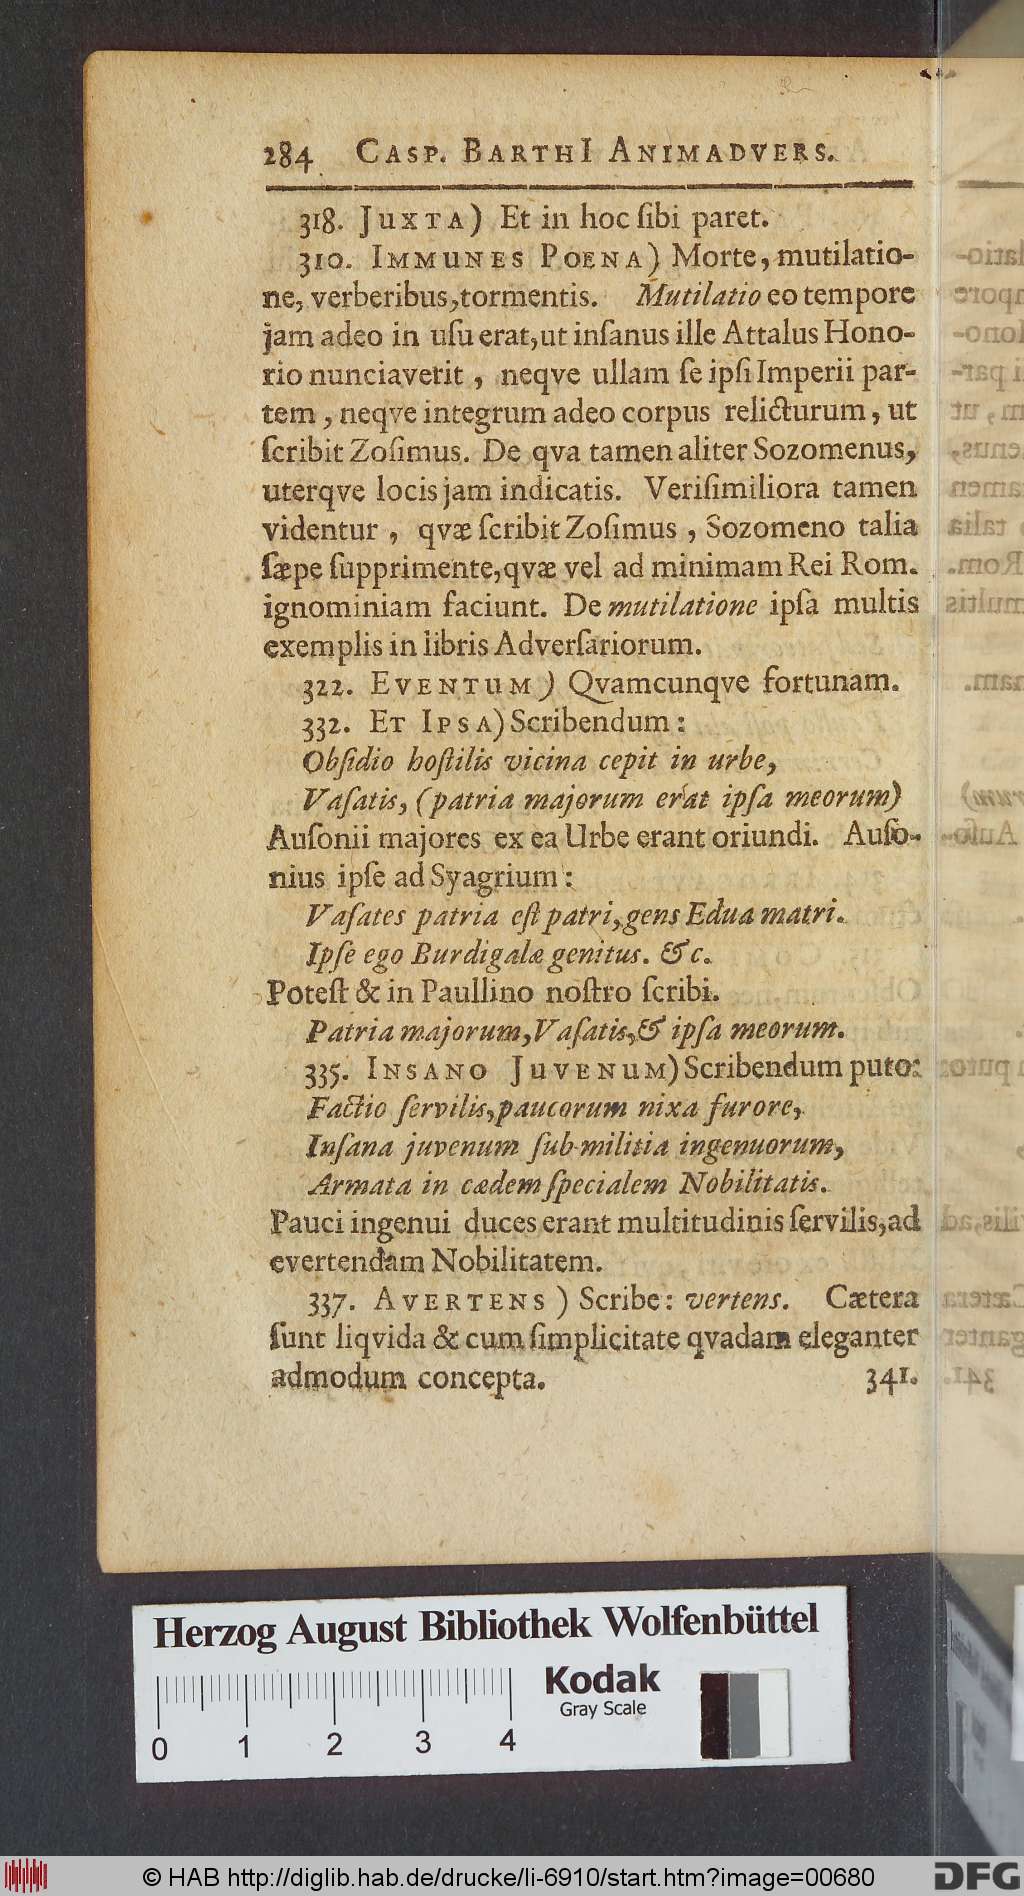 284 CASP. BARTHI ANIMADVERS.
318. JUXTA) Et in hoc ſibi paret.
310. IMMUNES POENA) Morte, mutilatio-
ne, verberibus, tormentis. Mutilatio eo tempore
jam adeo in uſu erat, ut inſanus ille Attalus Hono-
rio nunciaverit, neqve ullam ſe ipſi Imperii par-
tem, neqve integrum adeo corpus relicturum, ut
ſcribit Zoſimus. De qva tamen aliter Sozomenus,
uterqve locis jam indicatis. Veriſimiliora tamen
videntur, qvæ ſcribit Zoſimus, Sozomeno talia
ſæpe ſupprimente, qvæ vel ad minimam Rei Rom.
ignominiam faciunt. De mutilatione ipſa multis
exemplis in libris Adverſariorum.
322. EVENTUM) Qvamcunqve fortunam.
332. ET IPSA) Scribendum:
Obſidio hoſtilis vicina cepit in urbe,
Vaſatis, (patria majorum erat ipſa meorum)
Auſonii majores ex ea Urbe erant oriundi. Auſo-
nius ipſe ad Syagrium:
Vaſates patria eſt patri, gens Edua matri.
Ipſe ego Burdigalæ genitus. &c.
Poteſt & in Paullino noſtro ſcribi.
Patria majorum, Vaſatis, & ipſa meorum.
335. INSANO JUVENUM) Scribendum puto:
Factio ſervilis, paucorum nixa furore,
Inſana juvenum ſub militia ingenuorum,
Armata in cædem ſpecialem Nobilitatis.
Pauci ingenui duces erant multitudinis ſervilis, ad
evertendam Nobilitatem.
337. AVERTENS) Scribe: vertens. Cætera
ſunt liqvida & cum ſimplicitate qvadam eleganter
admodum concepta. 341.
Herzog August Bibliothek Wolfenbüttel
Kodak
Gray Scale
0 1 2 3 4
© HAB http://diglib.hab.de/drucke/li-6910/start.htm?image=00680
DFG